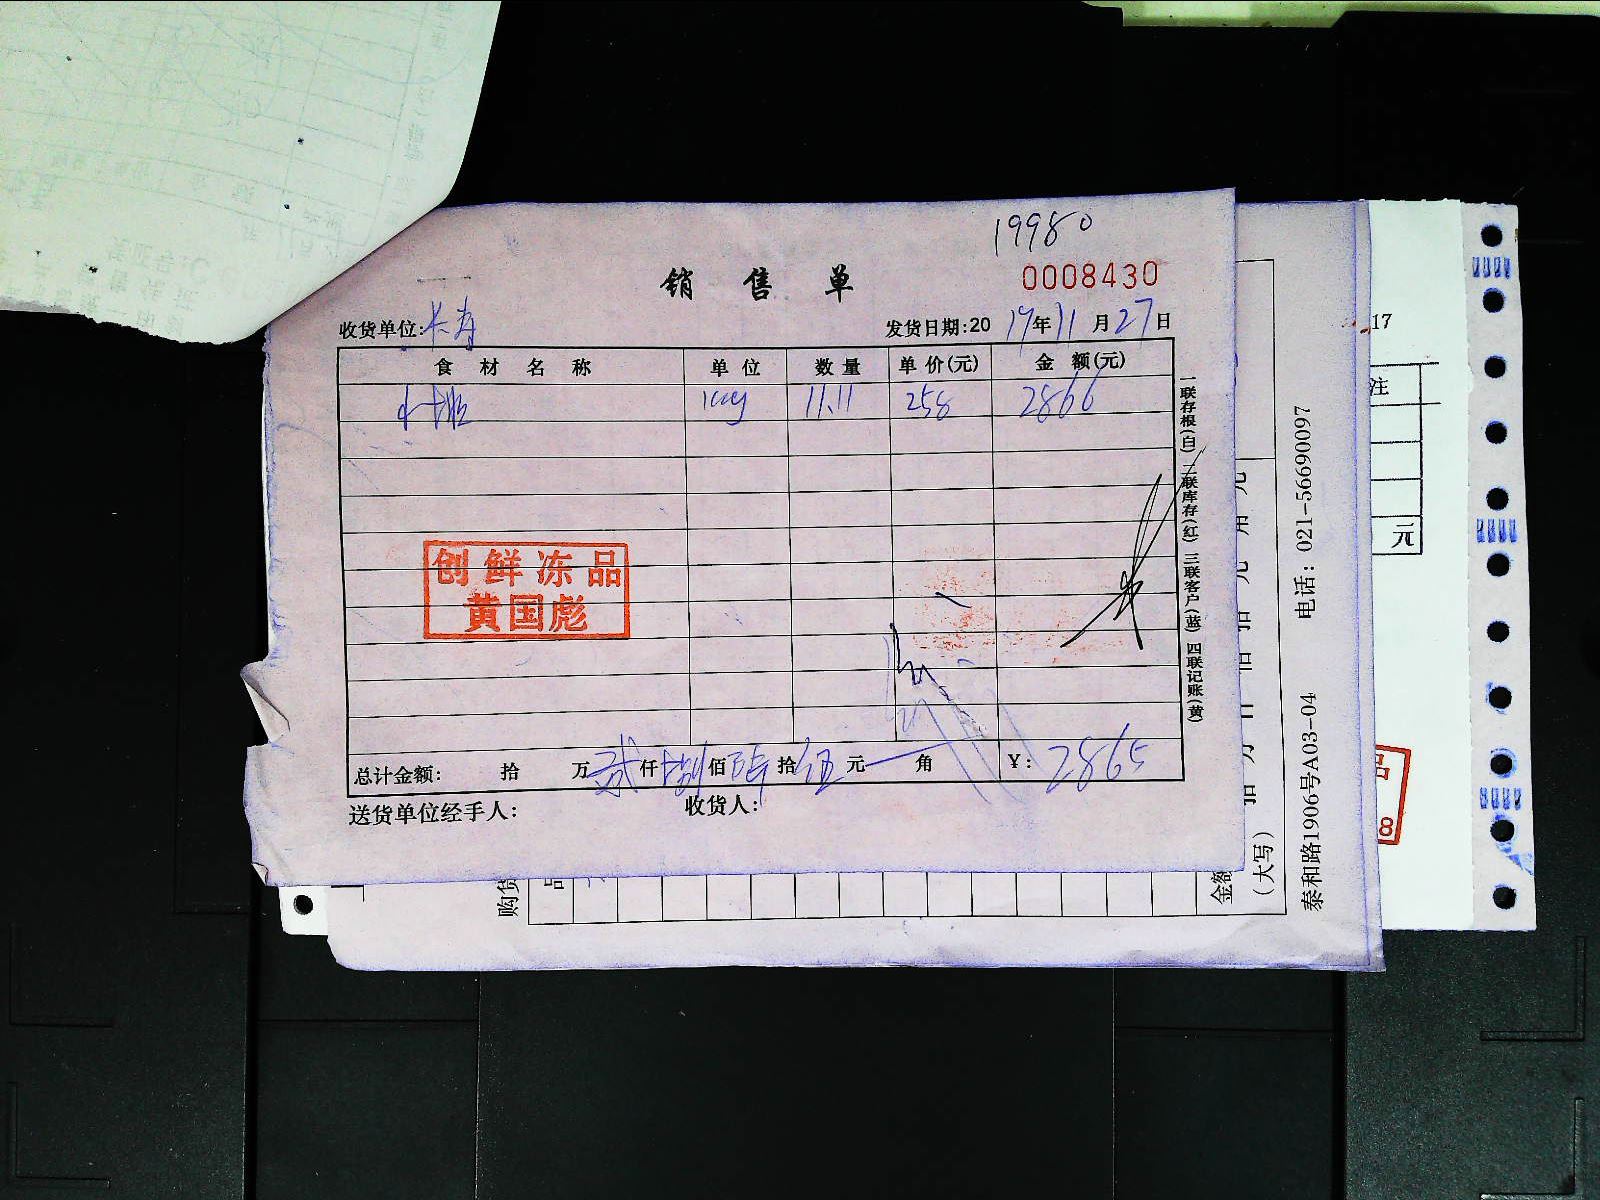 19980
销售单
0008430
收货单位:长寿
发货日期:2019年11月27日
食材名称 单位 数量 单价(元) 金额(元)
11.11 258 2866
一联存根(白) 二联库存(红) 三联客户(蓝) 四联记账(黄)
创鲜冻品
黄国彪
总计金额: 拾 万 贰仟捌佰陆拾伍元 角 ¥: 2865
送货单位经手人: 收货人:
购货
品
金额
(大写)
泰和路1906号A03-04 电话: 021-56690097
17
注
元
品
8